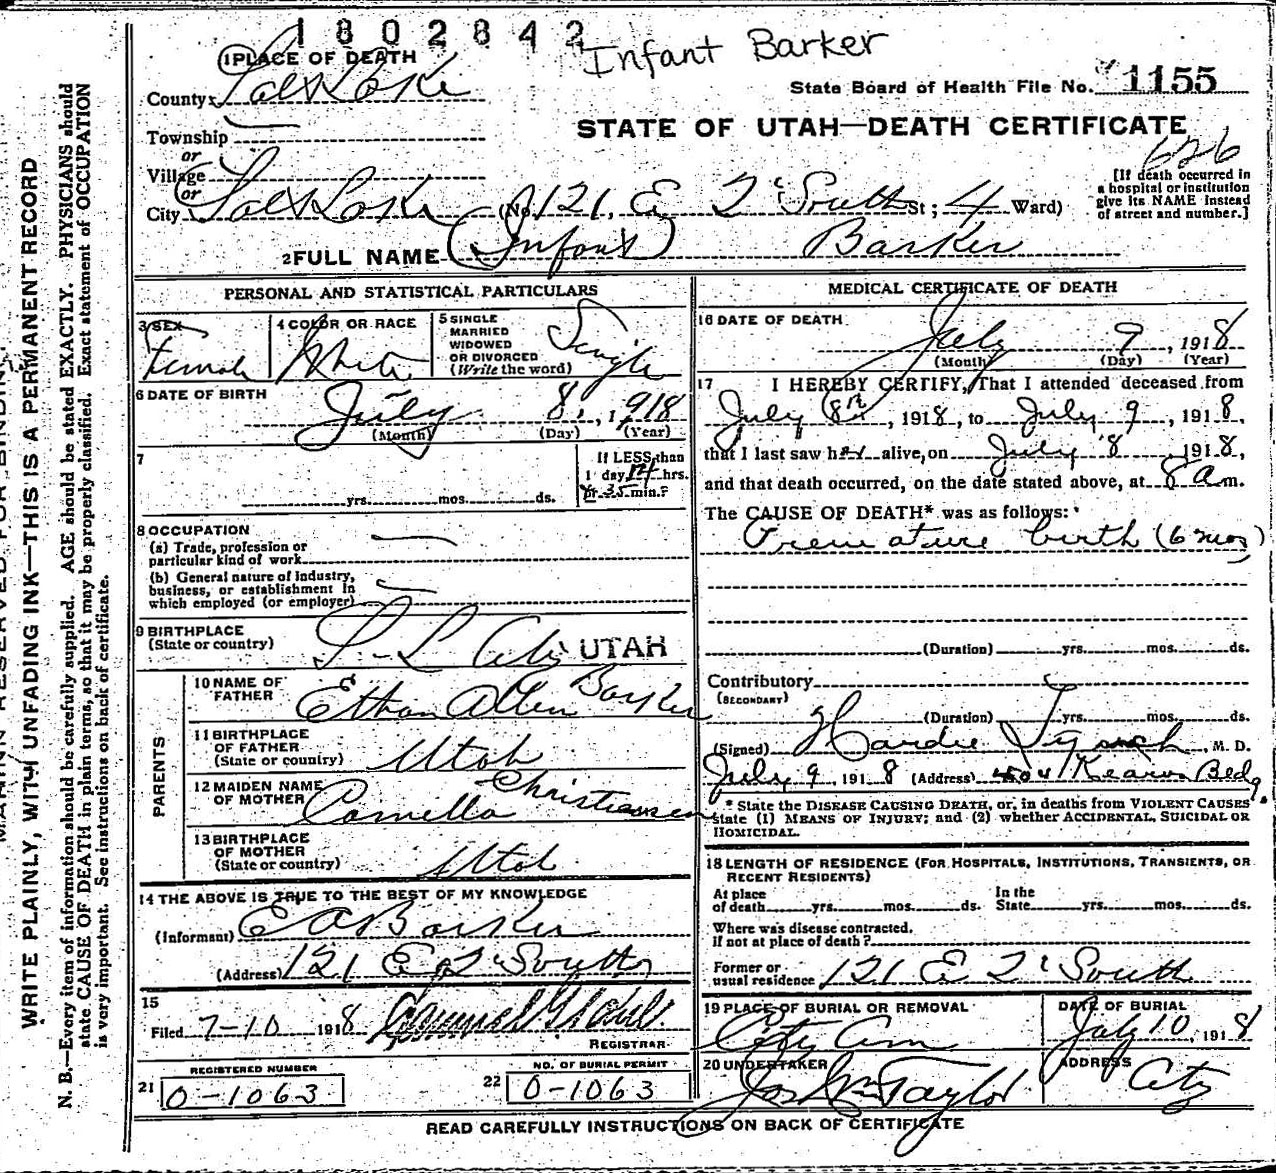 1802842
Infant Barker
1 PLACE OF DEATH
County Salt Lake
State Board of Health File No. 1155
STATE OF UTAH—DEATH CERTIFICATE
626
Township
or
Village
or
City Salt Lake (No. 121, E 2d South St; 4 Ward)
[If death occurred in
a hospital or institution
give its NAME instead
of street and number.]
2 FULL NAME (Infant) Barker
PERSONAL AND STATISTICAL PARTICULARS
3 SEX Female
4 COLOR OR RACE White
5 SINGLE
MARRIED
WIDOWED
OR DIVORCED
(Write the word) Single
6 DATE OF BIRTH July 8, 1918
(Month) (Day) (Year)
7 yrs. mos. ds.
If LESS than
1 day, 14 hrs.
or 35 min.?
8 OCCUPATION
(a) Trade, profession or
particular kind of work
(b) General nature of industry,
business, or establishment in
which employed (or employer)
9 BIRTHPLACE
(State or country) S-L City UTAH
PARENTS
10 NAME OF
FATHER Ethan Allen Barker
11 BIRTHPLACE
OF FATHER
(State or country) Utah
12 MAIDEN NAME
OF MOTHER Camella Christiansen
13 BIRTHPLACE
OF MOTHER
(State or country) Utah
14 THE ABOVE IS TRUE TO THE BEST OF MY KNOWLEDGE
(Informant) E A Barker
(Address) 121 E 2d South
15
Filed 7-10 1918
REGISTRAR
REGISTERED NUMBER
21 0-1063
NO. OF BURIAL PERMIT
22 0-1063
MEDICAL CERTIFICATE OF DEATH
16 DATE OF DEATH July 9, 1918
(Month) (Day) (Year)
17 I HEREBY CERTIFY, That I attended deceased from
July 8th, 1918, to July 9, 1918,
that I last saw her alive, on July 8, 1918,
and that death occurred, on the date stated above, at 8 a m.
The CAUSE OF DEATH* was as follows:
Premature birth (6 mos)
(Duration) yrs. mos. ds.
Contributory
(SECONDARY)
(Duration) yrs. mos. ds.
(Signed) Hardie Lynch, M. D.
July 9 1918 (Address) Kearns Bldg.
* State the DISEASE CAUSING DEATH, or, in deaths from VIOLENT CAUSES
state (1) MEANS OF INJURY; and (2) whether ACCIDENTAL, SUICIDAL OR
HOMICIDAL.
18 LENGTH OF RESIDENCE (FOR HOSPITALS, INSTITUTIONS, TRANSIENTS, OR
RECENT RESIDENTS)
At place
of death yrs. mos. ds.
In the
State yrs. mos. ds.
Where was disease contracted,
if not at place of death?
Former or
usual residence 121 E 2d South
19 PLACE OF BURIAL OR REMOVAL City Cem
DATE OF BURIAL July 10, 1918
20 UNDERTAKER Jos Wm Taylor
ADDRESS City
READ CAREFULLY INSTRUCTIONS ON BACK OF CERTIFICATE
MARGIN RESERVED FOR BINDING
WRITE PLAINLY, WITH UNFADING INK—THIS IS A PERMANENT RECORD
N. B.—Every item of information should be carefully supplied. AGE should be stated EXACTLY. PHYSICIANS should
state CAUSE OF DEATH in plain terms, so that it may be properly classified. Exact statement of OCCUPATION
is very important. See instructions on back of certificate.